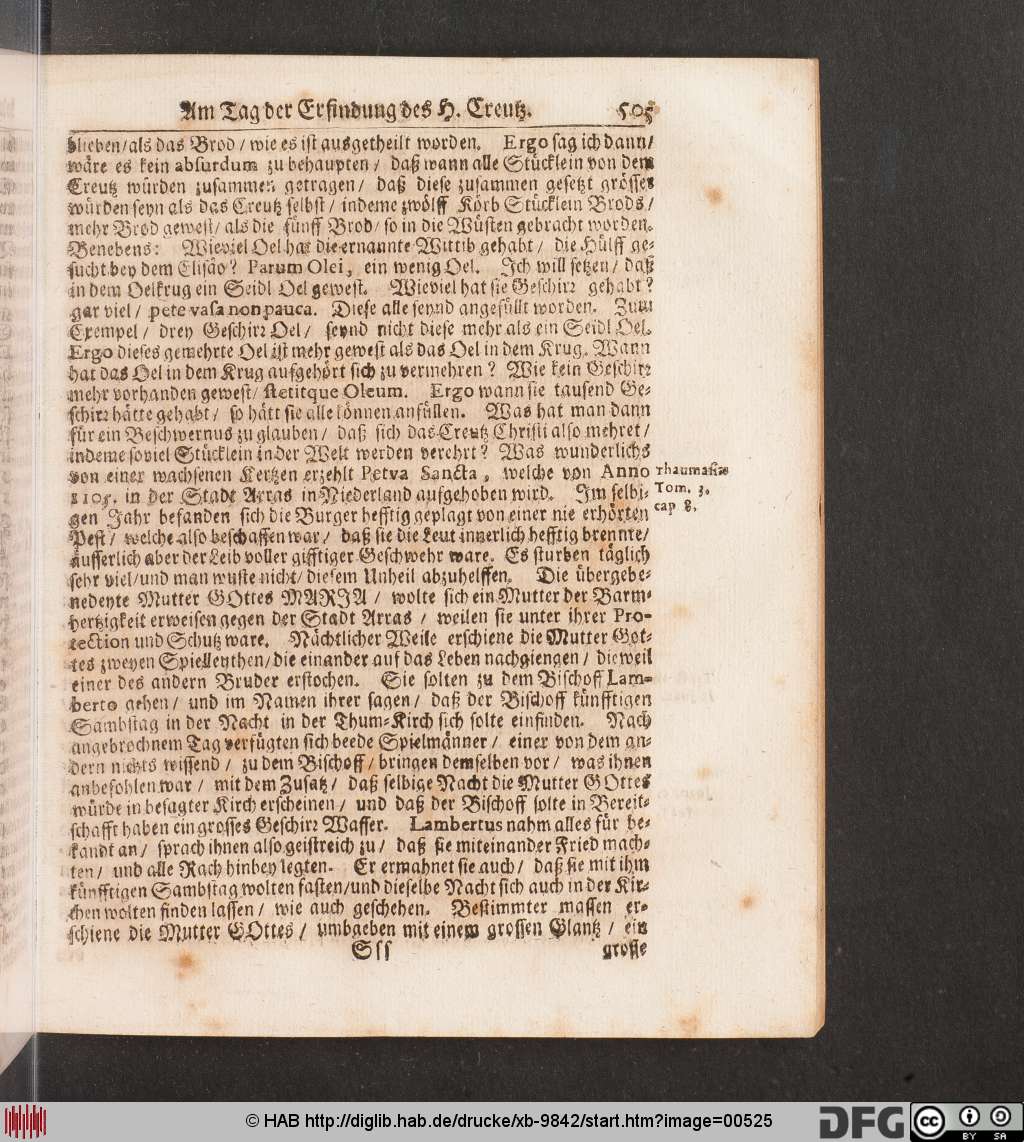 Am Tag der Erfindung des H. Creutz. 505
blieben/als das Brod/wie es ist ausgetheilt worden. Ergo sag ich dann/
wäre es kein absurdum zu behaupten/ daß wann alle Stücklein von dem
Creutz würden zusammen getragen/ daß diese zusammen gesetzt grösser
würden seyn als das Creutz selbst/ indeme zwölff Körb Stücklein Brods/
mehr Brod gewest/als die fünff Brod/so in die Wüsten gebracht worden.
Benebens: Wieviel Oel hat die ernannte Wittib gehabt/ die Hülff ge-
sucht bey dem Elisäo? Parum Olei, ein wenig Oel. Ich will setzen/ daß
in dem Oelkrug ein Seidl Oel gewest. Wieviel hat sie Geschirr gehabt?
gar viel/ pete vasa non pauca. Diese alle seynd angefüllt worden. Zum
Exempel/ drey Geschirr Oel/ seynd nicht diese mehr als ein Seidl Oel.
Ergo dieses gemehrte Oel ist mehr gewest als das Oel in dem Krug. Wann
hat das Oel in dem Krug aufgehört sich zu vermehren? Wie kein Geschirr
mehr vorhanden gewest/ stetitque Oleum. Ergo wann sie tausend Ge-
schirr hätte gehabt/ so hätt sie alle können anfüllen. Was hat man dann
für ein Beschwernus zu glauben/ daß sich das Creutz Christi also mehret/
indeme soviel Stücklein in der Welt werden verehrt? Was wunderlichs
von einer wachsenen Kertzen erzehlt Petva Sancta, welche von Anno
1105. in der Stadt Arras in Niederland aufgehoben wird. Im selbi-
gen Jahr befanden sich die Burger hefftig geplagt von einer nie erhörten
Pest/ welche also beschaffen war/ daß sie die Leut innerlich hefftig brennte/
äusserlich aber der Leib voller gifftiger Geschwehr ware. Es sturben täglich
sehr viel/und man wuste nicht/ diesem Unheil abzuhelffen. Die übergebe-
nedeyte Mutter GOttes MARJA/ wolte sich ein Mutter der Barm-
hertzigkeit erweisen gegen der Stadt Arras/ weilen sie unter ihrer Pro-
tection und Schutz ware. Nächtlicher Weile erschiene die Mutter Got-
tes zweyen Spielleuthen/die einander auf das Leben nachgiengen/ dieweil
einer des andern Bruder erstochen. Sie solten zu dem Bischoff Lam-
berto gehen/ und im Namen ihrer sagen/ daß der Bischoff künfftigen
Sambstag in der Nacht in der Thum-Kirch sich solte einfinden. Nach
angebrochnem Tag verfügten sich beede Spielmänner/ einer von dem an-
dern nichts wissend/ zu dem Bischoff/bringen demselben vor/ was ihnen
anbefohlen war/ mit dem Zusatz/ daß selbige Nacht die Mutter GOttes
würde in besagter Kirch erscheinen/ und daß der Bischoff solte in Bereit-
schafft haben ein grosses Geschirr Wasser. Lambertus nahm alles für be-
kandt an/ sprach ihnen also geistreich zu/ daß sie miteinander Fried mach-
ten/ und alle Rach hinbey legten. Er ermahnet sie auch/ daß sie mit ihm
künfftigen Sambstag wolten fasten/und dieselbe Nacht sich auch in der Kir-
chen wolten finden lassen/ wie auch geschehen. Bestimmter massen er-
schiene die Mutter GOttes/ umbgeben mit einem grossen Glantz/ ein
Sss grosse
Thaumasiæ
Tom. 3.
cap 8.
© HAB http://diglib.hab.de/drucke/xb-9842/start.htm?image=00525
DFG
cc BY SA